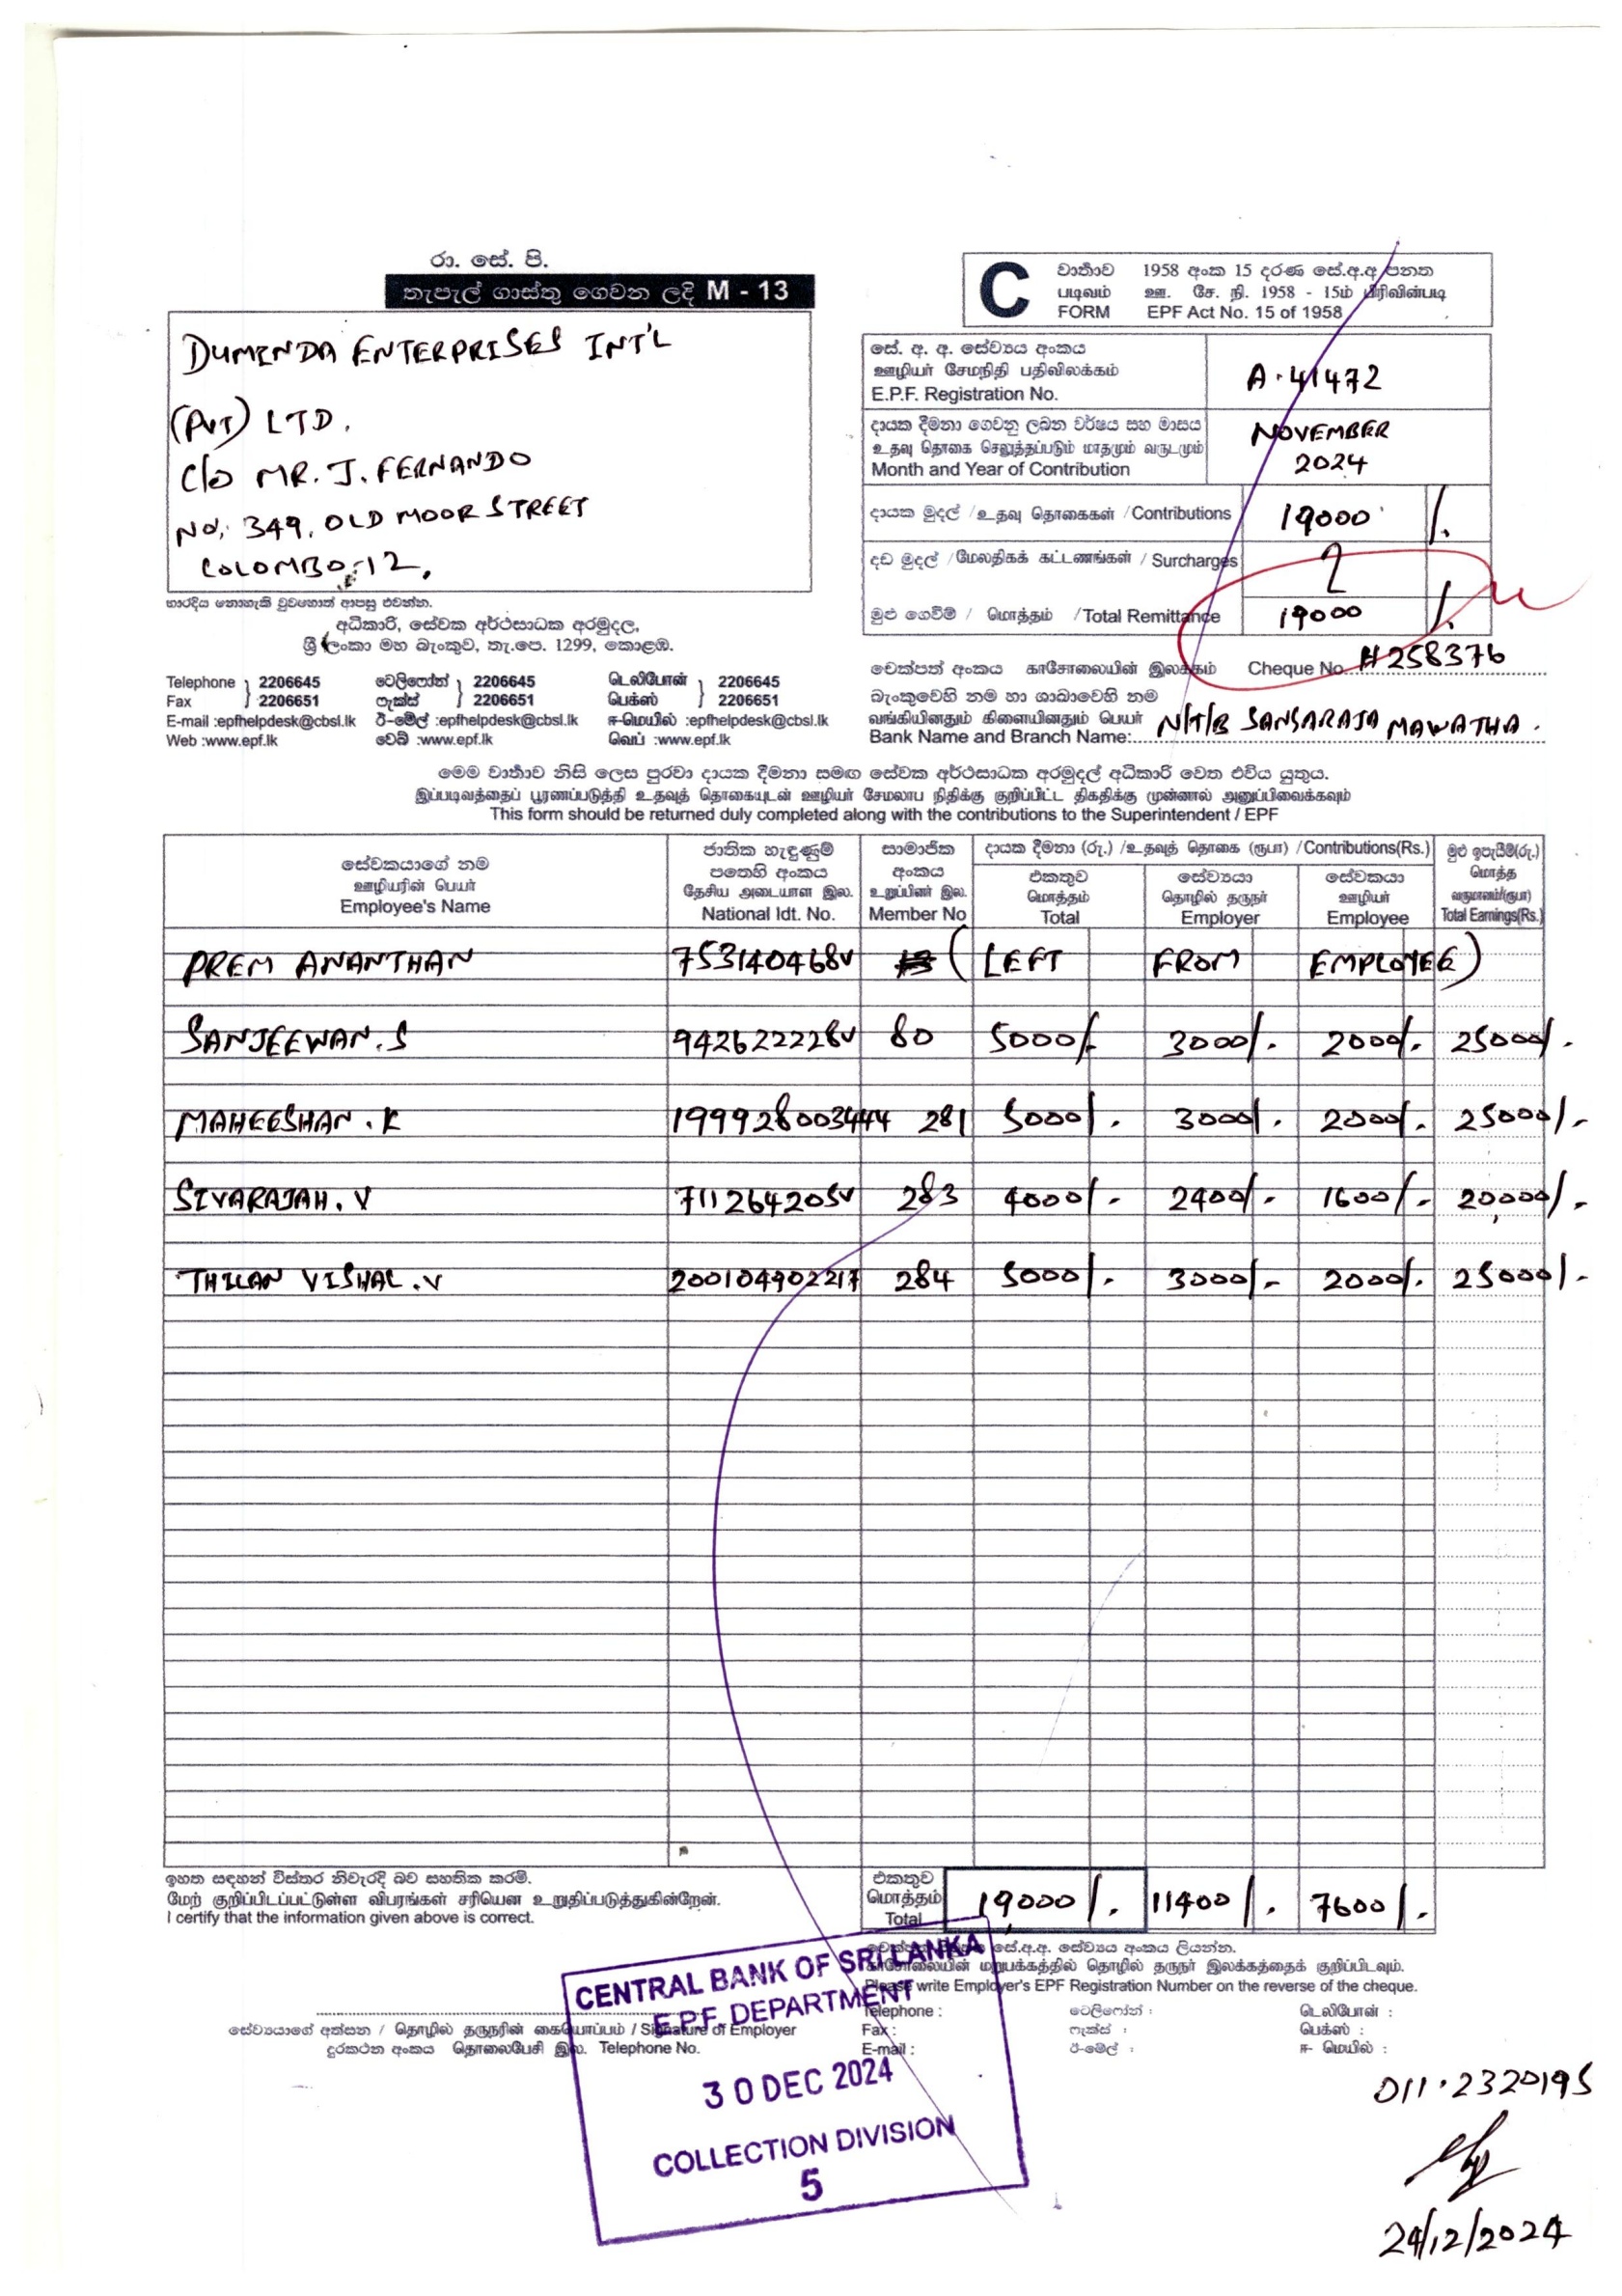 රා. සේ. පි.
තැපැල් ගාස්තු ගෙවන ලදි M - 13
DUMINDA ENTERPRISES INT'L
(PVT) LTD.
C/o MR. J. FERNANDO
No: 349, OLD MOOR STREET
COLOMBO-12.
භාරදිය නොහැකි වුවහොත් ආපසු එවන්න.
අධිකාරි, සේවක අර්ථසාධක අරමුදල,
ශ්‍රී ලංකා මහ බැංකුව, තැ.පෙ. 1299, කොළඹ.
Telephone 2206645 ටෙලිෆෝන් 2206645 டெலிபோன் 2206645
Fax 2206651 ෆැක්ස් 2206651 பெக்ஸ் 2206651
E-mail :epfhelpdesk@cbsl.lk ඊ-මේල් :epfhelpdesk@cbsl.lk ஈ-மெயில் :epfhelpdesk@cbsl.lk
Web :www.epf.lk වෙබ් :www.epf.lk வெப் :www.epf.lk
C
වාර්තාව 1958 අංක 15 දරණ සේ.අ.අ පනත
படிவம் ஊ. சே. நி. 1958 - 15ம் பிரிவின்படி
FORM EPF Act No. 15 of 1958
සේ. අ. අ. සේව්‍ය අංකය
ஊழியர் சேமநிதி பதிவிலக்கம்
E.P.F. Registration No. A.41472
දායක දීමනා ගෙවනු ලබන වර්ෂය සහ මාසය
உதவு தொகை செலுத்தப்படும் மாதமும் வருடமும்
Month and Year of Contribution NOVEMBER 2024
දායක මුදල් / உதவு தொகைகள் / Contributions 19000 /.
දඩ මුදල් / மேலதிகக் கட்டணங்கள் / Surcharges
මුළු ගෙවීම් / மொத்தம் / Total Remittance 19000 /.
චෙක්පත් අංකය காசோலையின் இலக்கம் Cheque No. # 258376
බැංකුවෙහි නම හා ශාඛාවෙහි නම
வங்கியினதும் கிளையினதும் பெயர்
Bank Name and Branch Name: N/T/B SANSARAJA MAWATHA.
මෙම වාර්තාව නිසි ලෙස පුරවා දායක දීමනා සමඟ සේවක අර්ථසාධක අරමුදල් අධිකාරි වෙත එවිය යුතුය.
இப்படிவத்தைப் பூரணப்படுத்தி உதவுத் தொகையுடன் ஊழியர் சேமலாப நிதிக்கு குறிப்பிட்ட திகதிக்கு முன்னால் அனுப்பிவைக்கவும்
This form should be returned duly completed along with the contributions to the Superintendent / EPF
සේවකයාගේ නම ජාතික හැඳුණුම් පතෙහි අංකය සාමාජික අංකය දායක දීමනා (රු.) / உதவுத் தொகை (ரூபா) / Contributions(Rs.) මුළු ඉපැයීම්(රු.)
ஊழியரின் பெயர் தேசிய அடையாள இல. உறுப்பினர் இல. එකතුව සේව්‍යයා සේවකයා மொத்த
மொத்தம் தொழில் தருநர் ஊழியர் வருமானம்(ரூபா)
Employee's Name National Idt. No. Member No Total Employer Employee Total Earnings(Rs.)
PREM ANANTHAN 753140468V (LEFT FROM EMPLOYEE)
SANJEEWAN.S 942622228V 80 5000/- 3000/. 2000/. 25000/.
MAHEESHAN.K 199928003444 281 5000/. 3000/. 2000/. 25000/-
SIVARAJAH.V 711264205V 283 4000/- 2400/- 1600/- 20,000/-
THILAN VISHAL.V 200104902217 284 5000/- 3000/- 2000/. 25000/-
ඉහත සඳහන් විස්තර නිවැරදි බව සහතික කරමි.
மேற் குறிப்பிடப்பட்டுள்ள விபரங்கள் சரியென உறுதிப்படுத்துகின்றேன்.
I certify that the information given above is correct.
එකතුව
மொத்தம்
Total 19,000/. 11400/. 7600/.
සේ.අ.අ. සේව්‍ය අංකය ලියන්න.
காசோலையின் மறுபக்கத்தில் தொழில் தருநர் இலக்கத்தைக் குறிப்பிடவும்.
Please write Employer's EPF Registration Number on the reverse of the cheque.
සේව්‍යයාගේ අත්සන / தொழில் தருநரின் கையொப்பம் / Signature of Employer
දුරකථන අංකය தொலைபேசி இல. Telephone No.
Telephone : ටෙලිෆෝන් : டெலிபோன் :
Fax : ෆැක්ස් : பெக்ஸ் :
E-mail : ඊ-මේල් : ஈ- மெயில் :
CENTRAL BANK OF SRI LANKA
E.P.F. DEPARTMENT
30 DEC 2024
COLLECTION DIVISION
5
011.2320195
24/12/2024